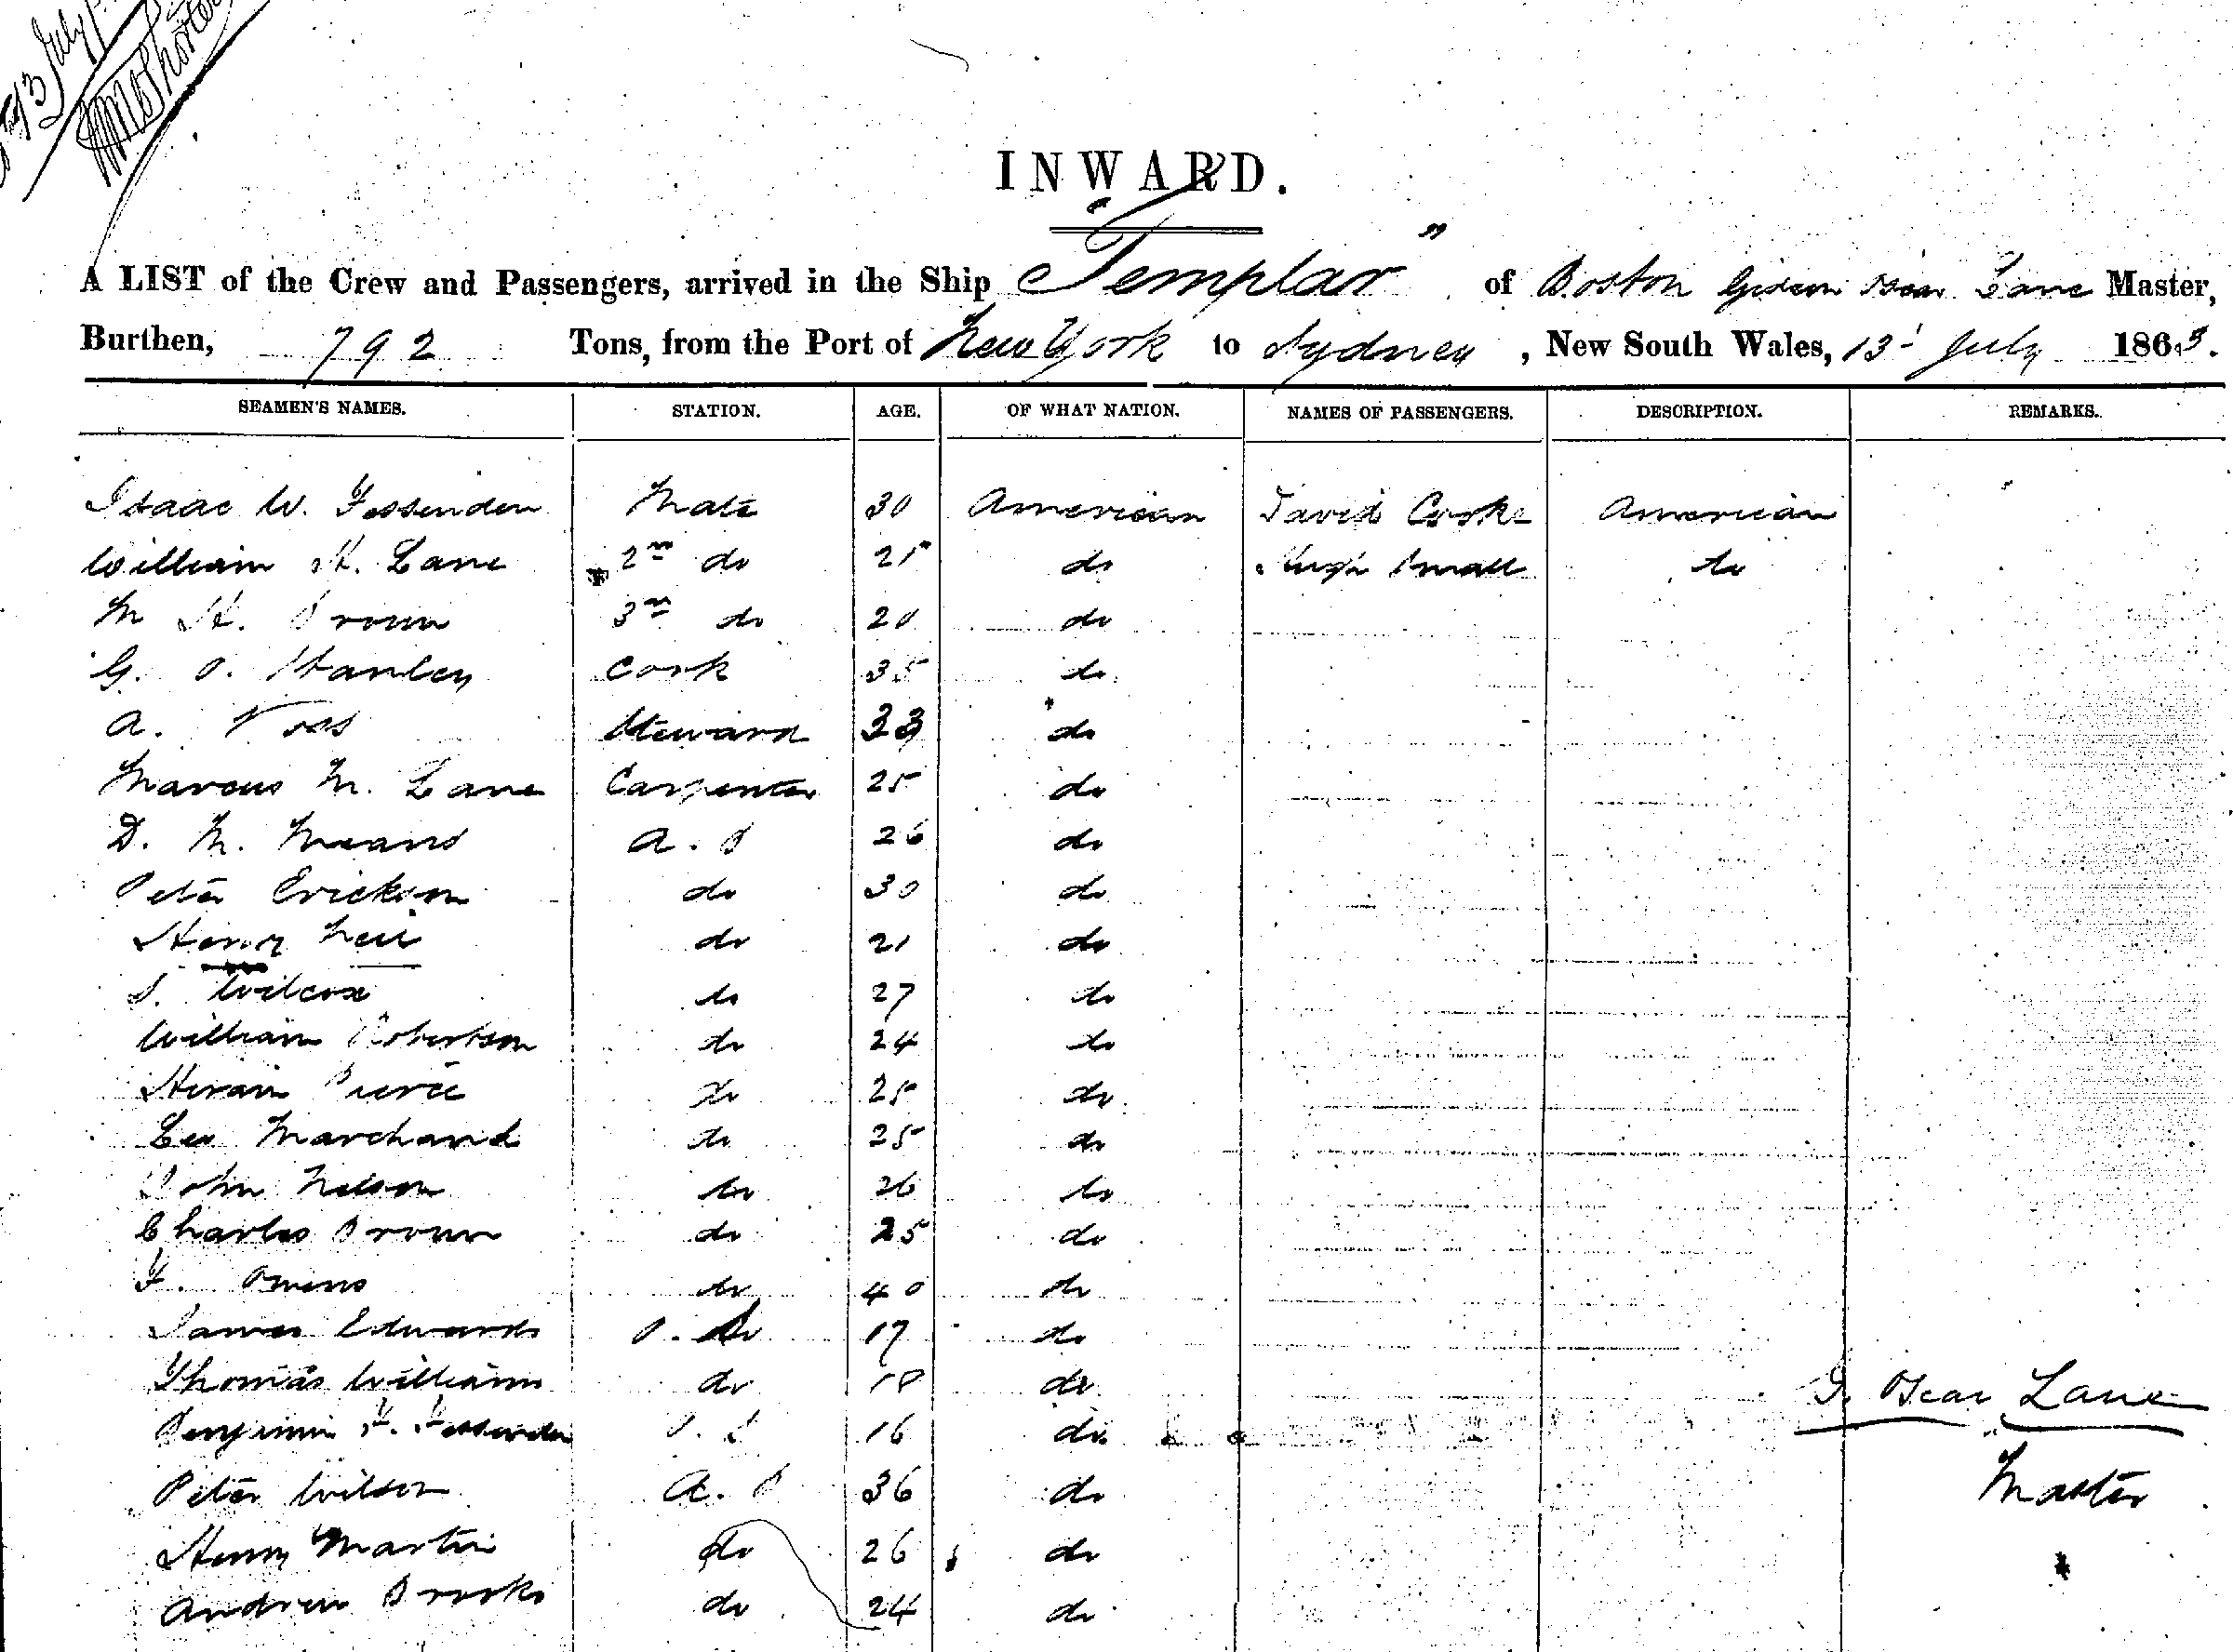 13 July
INWARD.
A LIST of the Crew and Passengers, arrived in the Ship "Templar" of Boston Gideon Oscar Lane Master,
Burthen, 792 Tons, from the Port of New York to Sydney, New South Wales, 13 July 1863.
SEAMEN'S NAMES. STATION. AGE. OF WHAT NATION. NAMES OF PASSENGERS. DESCRIPTION. REMARKS.
Isaac W. Fessenden Mate 30 American David Cooke American
William H. Lane 2nd do 21 do Hugh Small do
M H. Brown 3rd do 20 do
G. O. Stanley Cook 35 do
A. Voss Steward 33 do
Marcus M. Lane Carpenter 25 do
D. M. Means A. S 26 do
Peter Erickson do 30 do
Henry Neil do 21 do
S. Wilcox do 27 do
William Robertson do 24 do
Hiram Pierce do 25 do
Leo Marchand do 25 do
John Nelson do 26 do
Charles Brown do 25 do
F. Owens do 40 do
James Edwards O. do 17 do
Thomas William do 18 do
G. Oscar Lane
Benjamin F. Fessenden 16 do
Peter Wilson A. S 36 do
Master
Henry Martin do 26 do
Andrew Brooks do 24 do